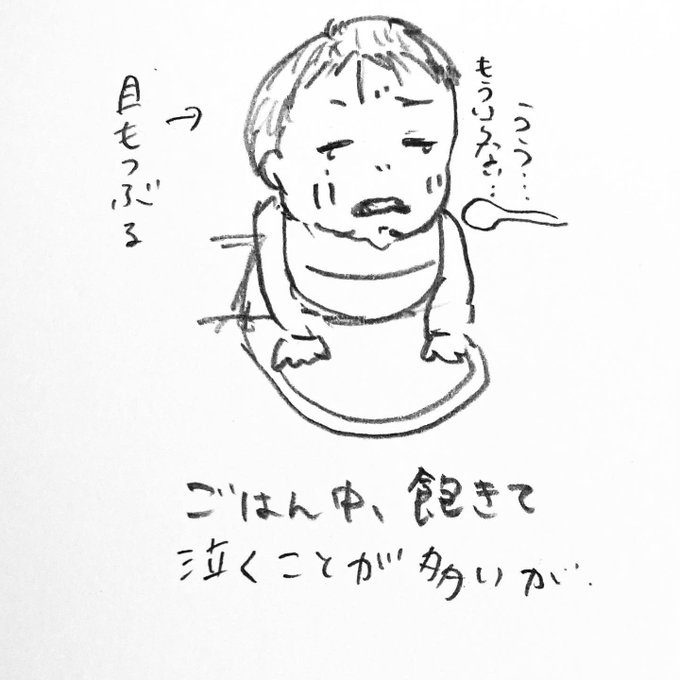 うう…
もういらない…
目もつぶる
ごはん中、飽きて
泣くことが多いが